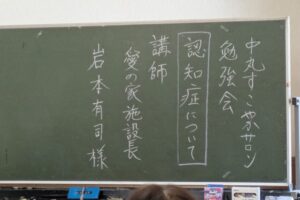 中丸すこやかサロン
勉強会
認知症について
講師
愛の家施設長
岩本有司様